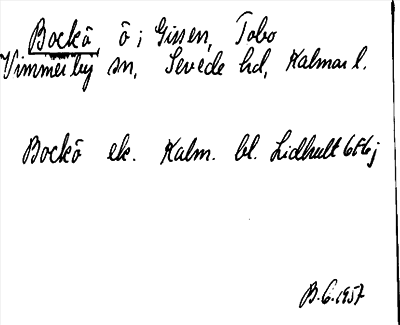 Bockö, ö i Gissen, Tobo
Vimmerby sn, Sevede hd, Kalmar l.
Bockö ek. Kalm. bl. Lidhult 6f6j
B.G. 1957